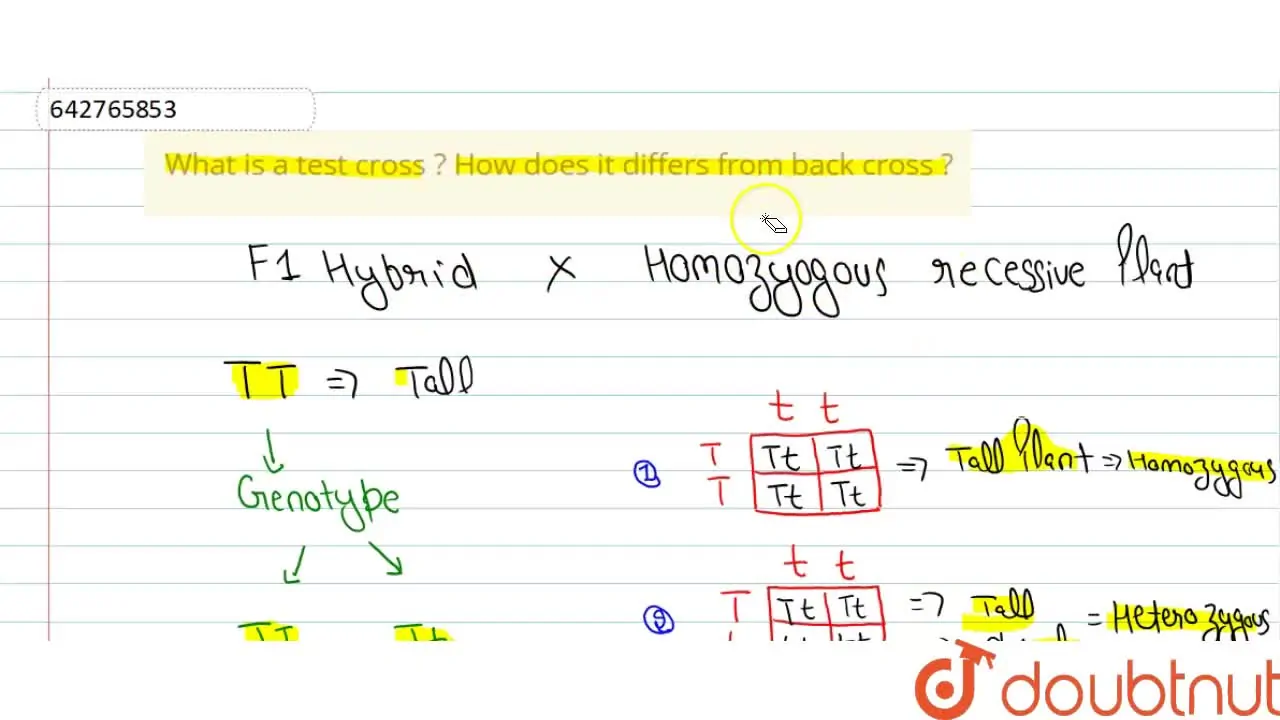 642765853
What is a test cross ? How does it differs from back cross ?
F1 Hybrid × Homozyogous recessive Plant
TT ⇒ Tall
t t
T Tt Tt ⇒ Tall Plant ⇒ Homozygous
① T Tt Tt
Genotype
t t
T Tt Tt ⇒ Tall = Heterozygous
②
TT Tt
doubtnut